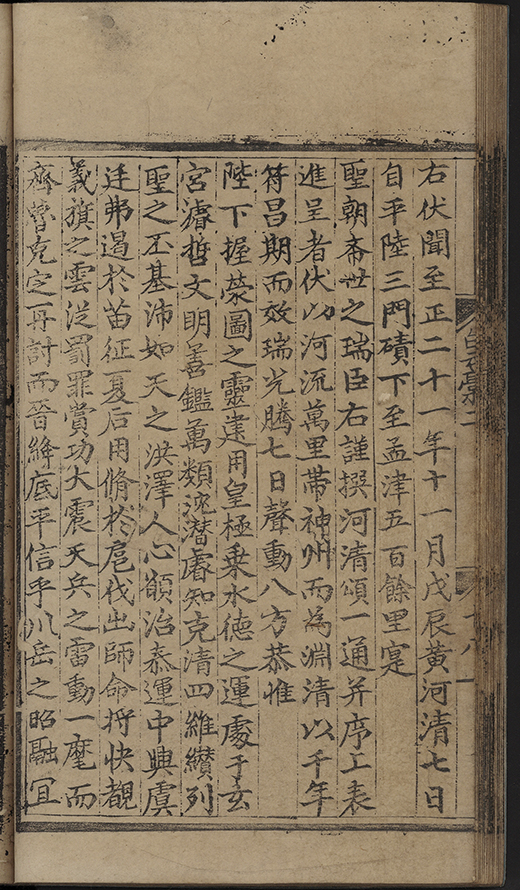 右伏聞至正二十一年十一月戊辰黃河清七日
自平陸三門磧下至孟津五百餘里寔
聖朝希世之瑞臣右謹撰河清頌一通并序工表
進呈者伏以河流萬里帶神州而為淵清以千年
符昌期而效瑞光騰七日聲動八方恭惟
陛下握榮圖之靈建用皇極乗水徳之運處于玄
宮濬哲文明善鑑萬類沉潜睿知克清四維纉列
聖之丕基沛如天之洪澤人心願治泰運中興虞
廷弗遏於苗征夏后用脩於扈伐出師命将快覩
義旗之雲从罰罪賞功大震天兵之雷動一麾而
齊魯克定再討而晉絳底平信乎川岳之昭融冝